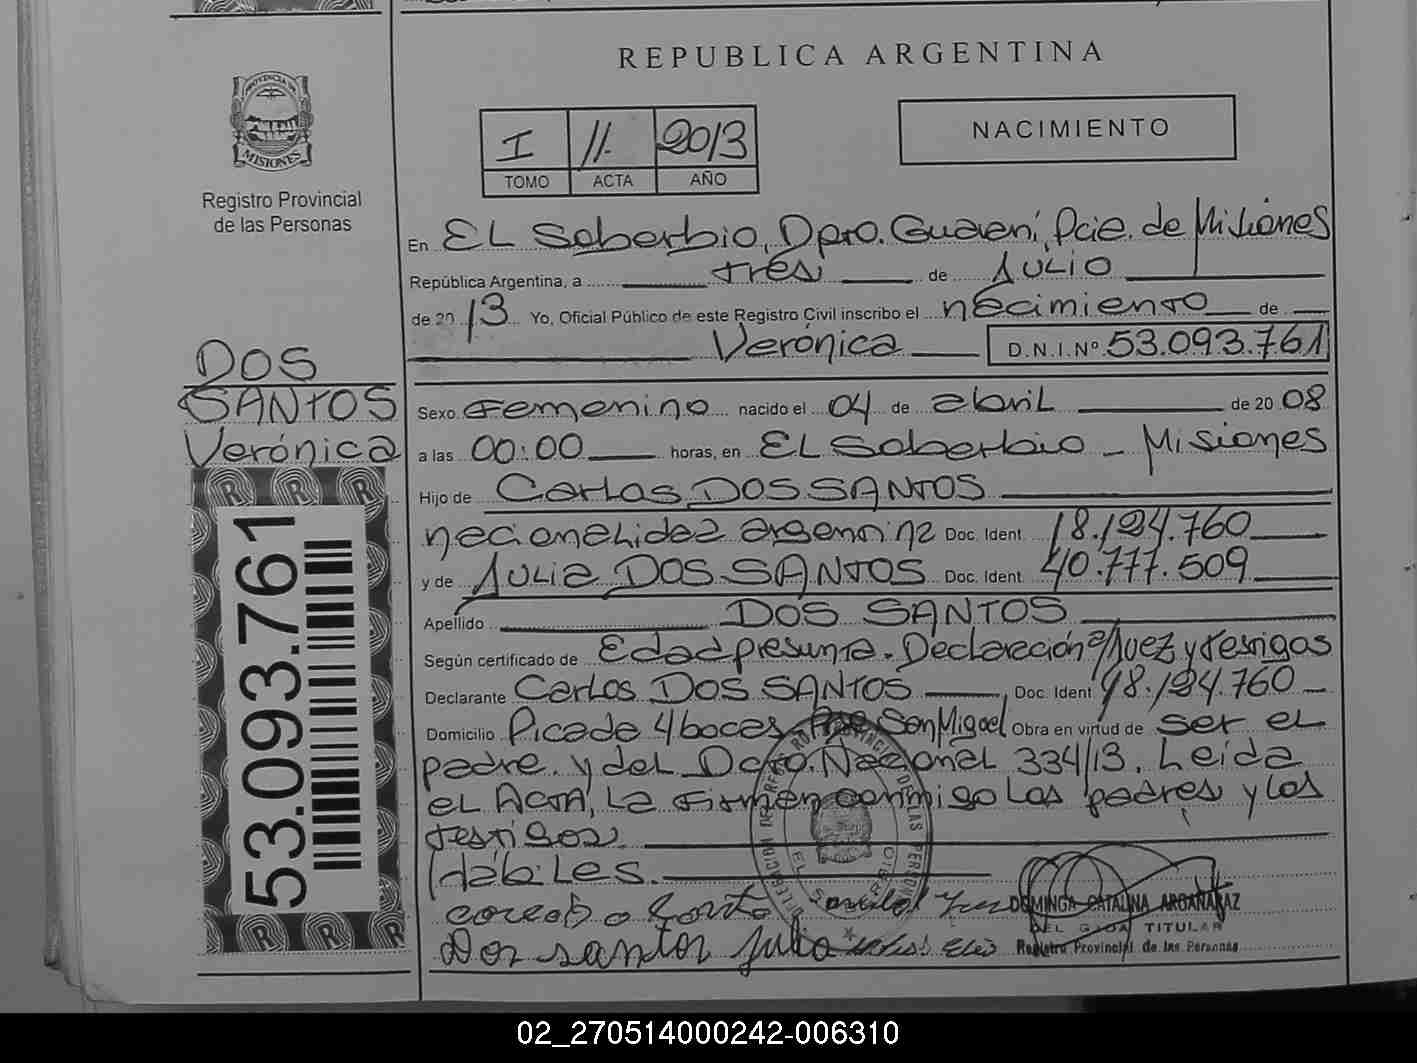 REPUBLICA ARGENTINA
PROVINCIA DE
MISIONES
Registro Provincial
de las Personas
I 11. 2013
TOMO ACTA AÑO
NACIMIENTO
En EL Soberbio, Dpto. Guaraní, Pcia. de Misiones
República Argentina, a tres de Julio
de 2013 Yo, Oficial Público de este Registro Civil inscribo el nacimiento de
Verónica D.N.I.Nº 53.093.761
DOS
SANTOS
Verónica
Sexo Femenino nacido el 04 de abril de 2008
a las 00:00 horas, en EL Soberbio - Misiones
Hijo de Carlos DOS SANTOS
nacionalidad argentina Doc. Ident. 18.124.760
y de Julia DOS SANTOS Doc. Ident. 40.777.509
Apellido DOS SANTOS
Según certificado de Edad presunta. Declaración a/Juez y testigos
Declarante Carlos DOS SANTOS Doc. Ident 18.124.760
Domicilio Picada 4 bocas San Miguel Obra en virtud de ser el
padre y del Dcto. Nacional 334/13. Leida
el Acta, la firman conmigo los padres y los
testigos
hábiles.
Dos santos Julia
DOMINGA CATALINA ARGAÑARAZ
TITULAR
Registro Provincial de las Personas
EL SOBERBIO
R R R
53.093.761
R R R
02_270514000242-006310